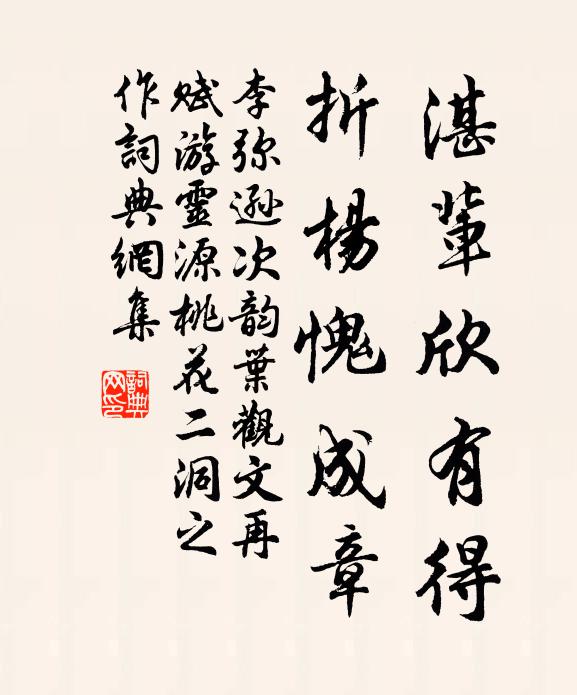 湛輩欣有得
折楊愧成章
李弥遜次韵葉觀文再
賦游靈源桃花二洞之
作詞典網集
詞典网印